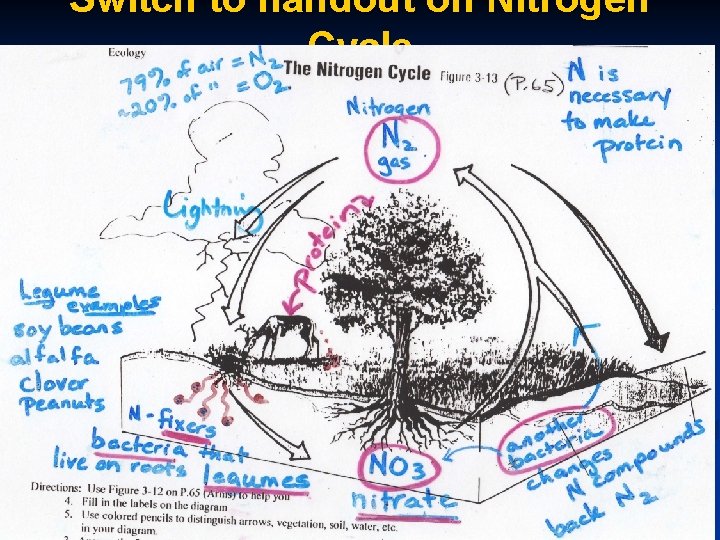 Switch to handout on Nitrogen
Cycle
Ecology
The Nitrogen Cycle Figure 3-13 (P.65)
79% of air = N2
~20% of " = O2.
Nitrogen
N2
gas
N is
necessary
to make
protein
Lightning
protein
Legume
examples
soy beans
alfalfa
clover
peanuts
N-fixers
bacteria that
live on roots legumes
NO3
nitrate
another
bacteria
changes
N compounds
back N2
Directions: Use Figure 3-12 on P.65 (Arms) to help you
4. Fill in the labels on the diagram
5. Use colored pencils to distinguish arrows, vegetation, soil, water, etc.
in your diagram.